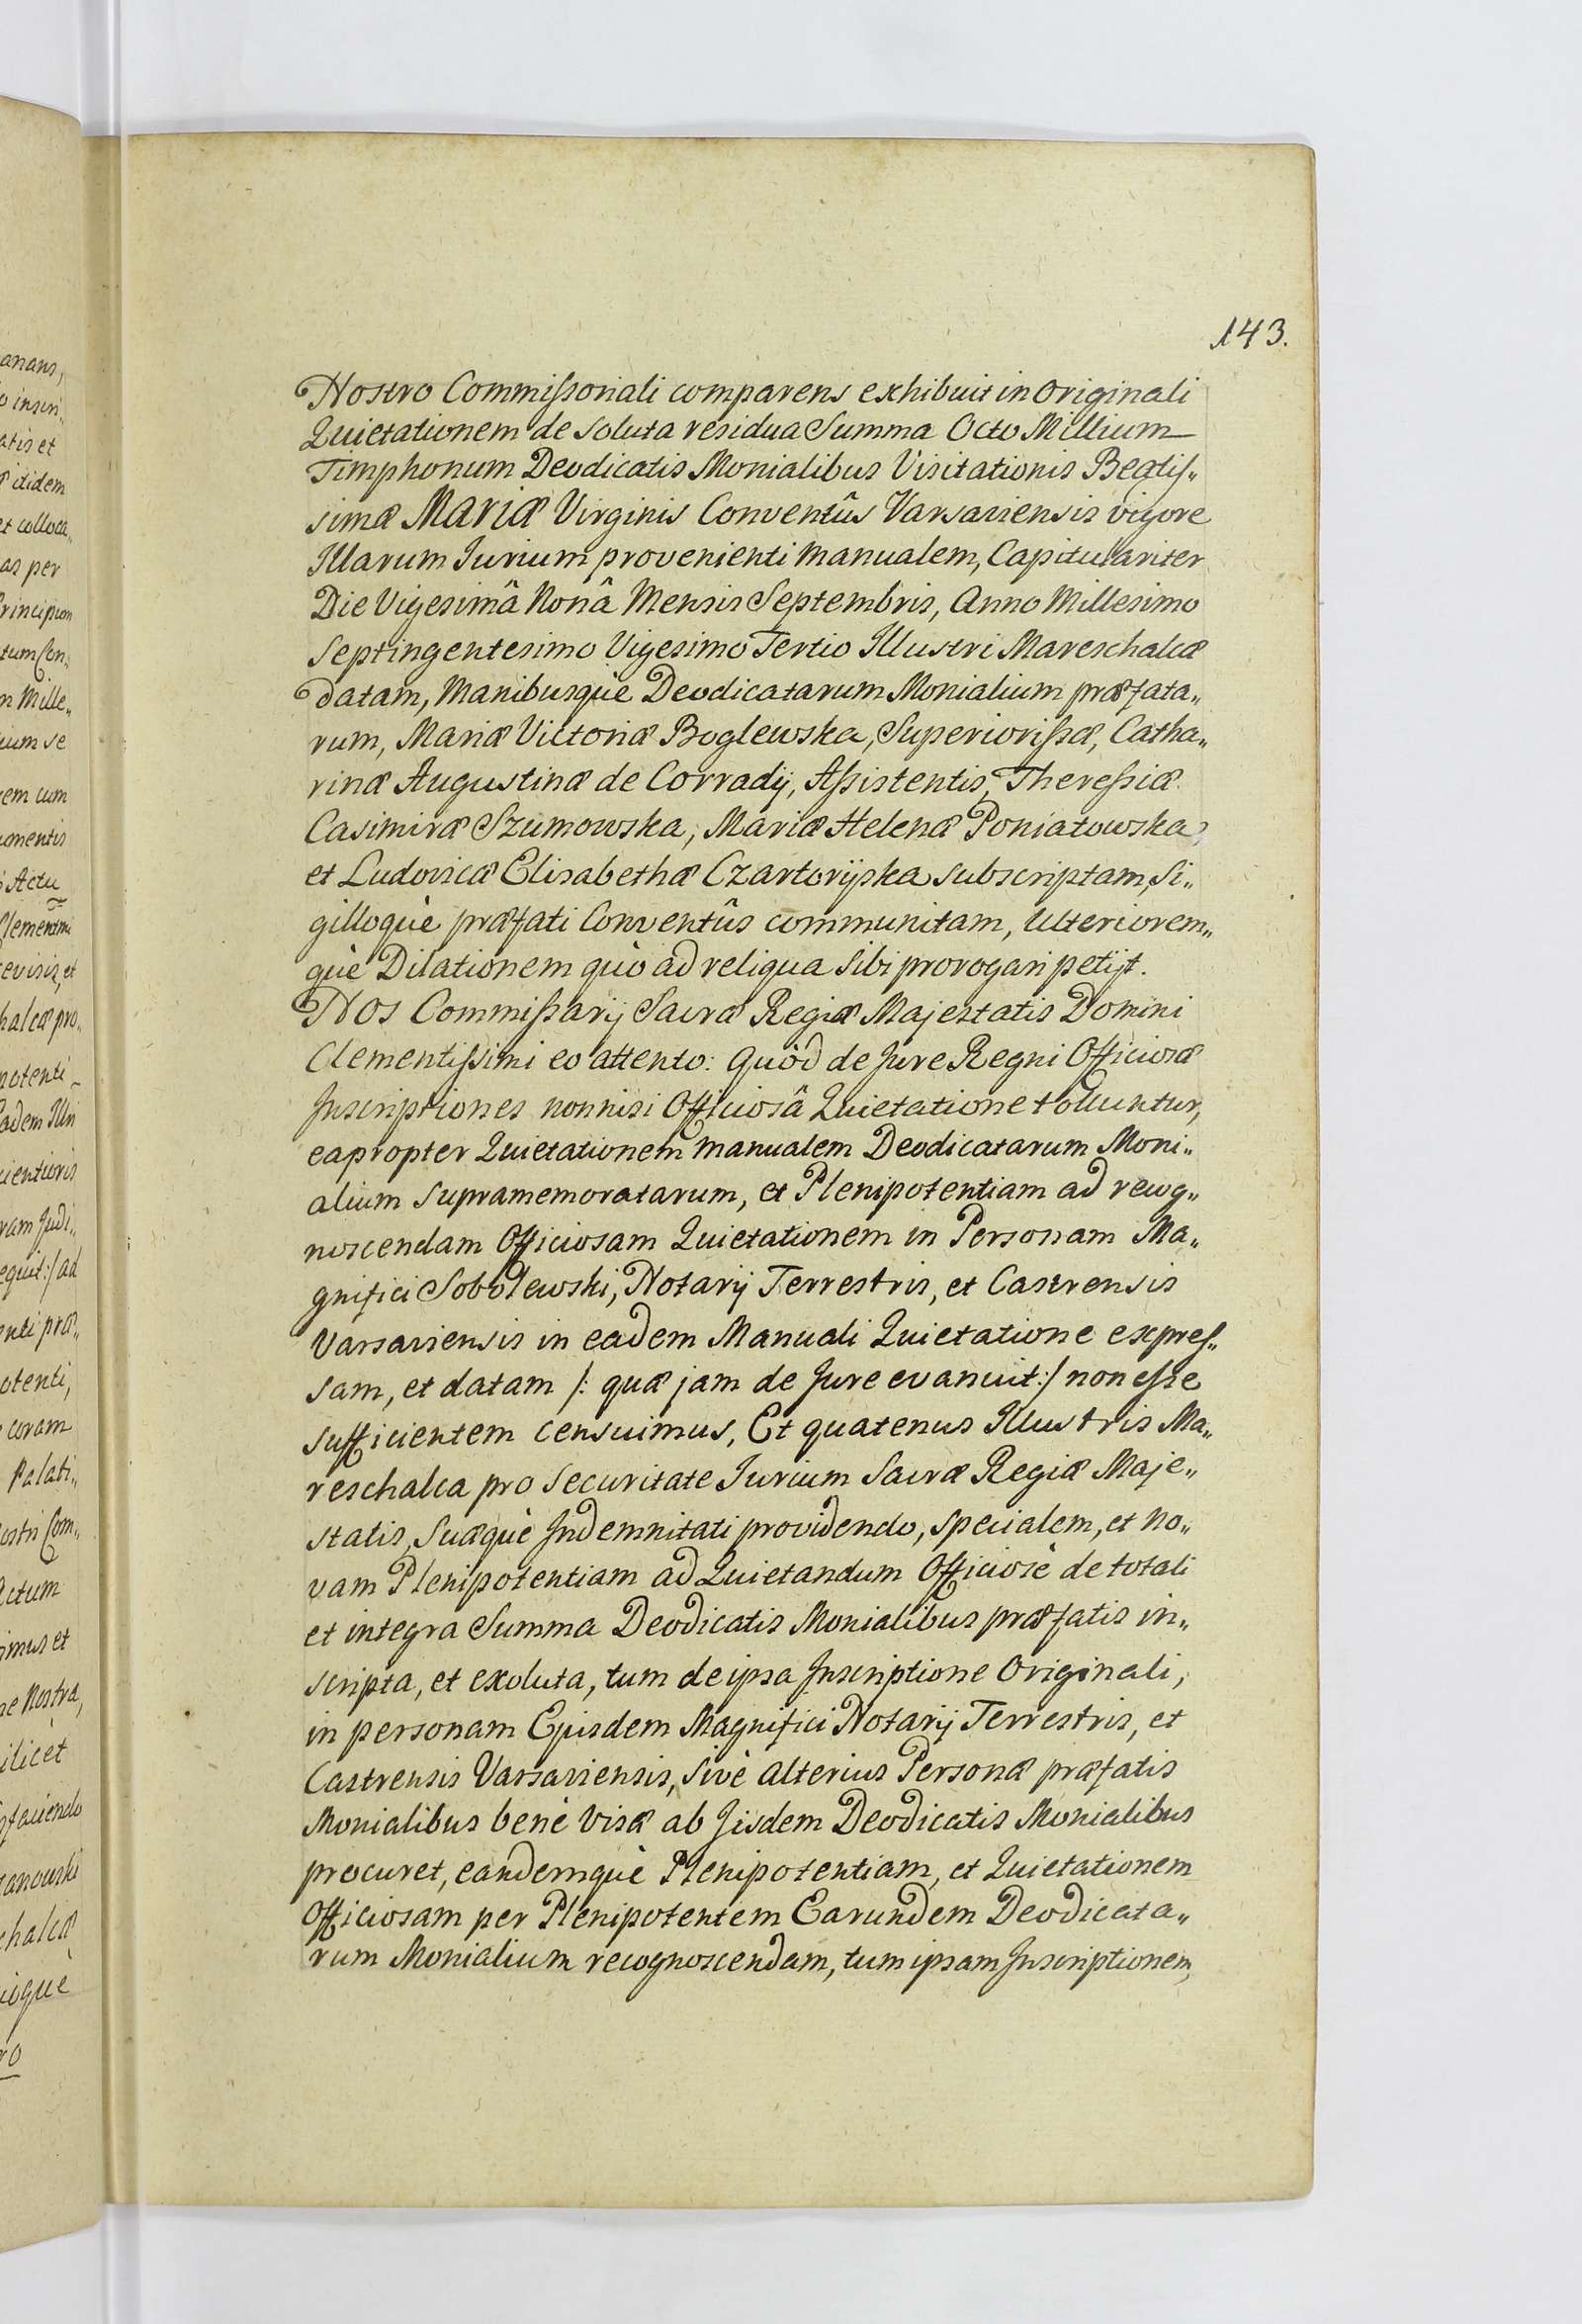 143.
Nostro Commissoriali comparens exhibuit in Originali
Quietationem de soluta residua Summa Octo Millium
Timphonum Deodicatis Monialibus Visitationis Beatis„
simæ MARIÆ Virginis Conventûs Varsaviensis vigore
Illarum Iurium provenienti manualem, Capitulariter
Die Vigesimâ Nonâ Mensis Septembris, Anno Millesimo
Septingentesimo Vigesimo Tertio Illustri Mareschalcæ
datam, Manibusquè Deodicatarum Monialium præfata„
rum, Mariæ Victoriæ Boglewska, Superiorissæ, Catha„
rinæ Augustinæ de Corradij, Assistentis, Theressiæ
Casimiræ Szumowska, Mariæ Helenæ Poniatowska,
et Ludovicæ Elisabethæ Czartoryska subscriptam, Si„
gilloquè præfati Conventûs communitam, Ulteriorem„
què Dilationem quò ad reliqua sibi prorogari petijt.
NOS Commissarij Sacræ Regiæ Majestatis Domini
Clementissimi eo attento: Quòd de Jure Regni Officiosæ
Inscriptiones nonnisi Officiosâ Quietatione tolluntur,
eapropter Quietationem manualem Deodicatarum Moni„
alium supramemoratarum, et Plenipotentiam ad recog„
noscendam Officiosam Quietationem in Personam Ma„
gnifici Sobolewski, Notarij Terrestris, et Castrensis
Varsaviensis in eadem Manuali Quietatione expres„
sam, et datam /: quæ jam de Jure evanuit :/ non esse
sufficientem censuimus, Et quatenus Illustris Ma„
reschalca pro securitate Iurium Sacræ Regiæ Maje„
statis, Suæquè Indemnitati providendo, specialem, et no„
vam Plenipotentiam ad Quietandum Officiosè de totali
et integra Summa Deodicatis Monialibus præfatis in„
scripta, et exoluta, tum de ipsa Inscriptione Originali,
in personam Ejusdem Magnifici Notarij Terrestris, et
Castrensis Varsaviensis, Sivè alterius Personæ præfatis
Monialibus benè visæ ab Iisdem Deodicatis Monialibus
procuret, eandemquè Plenipotentiam, et Quietationem
Officiosam per Plenipotentem Earundem Deodicata„
rum Monialium recognoscendam, tum ipsam Inscriptionem,